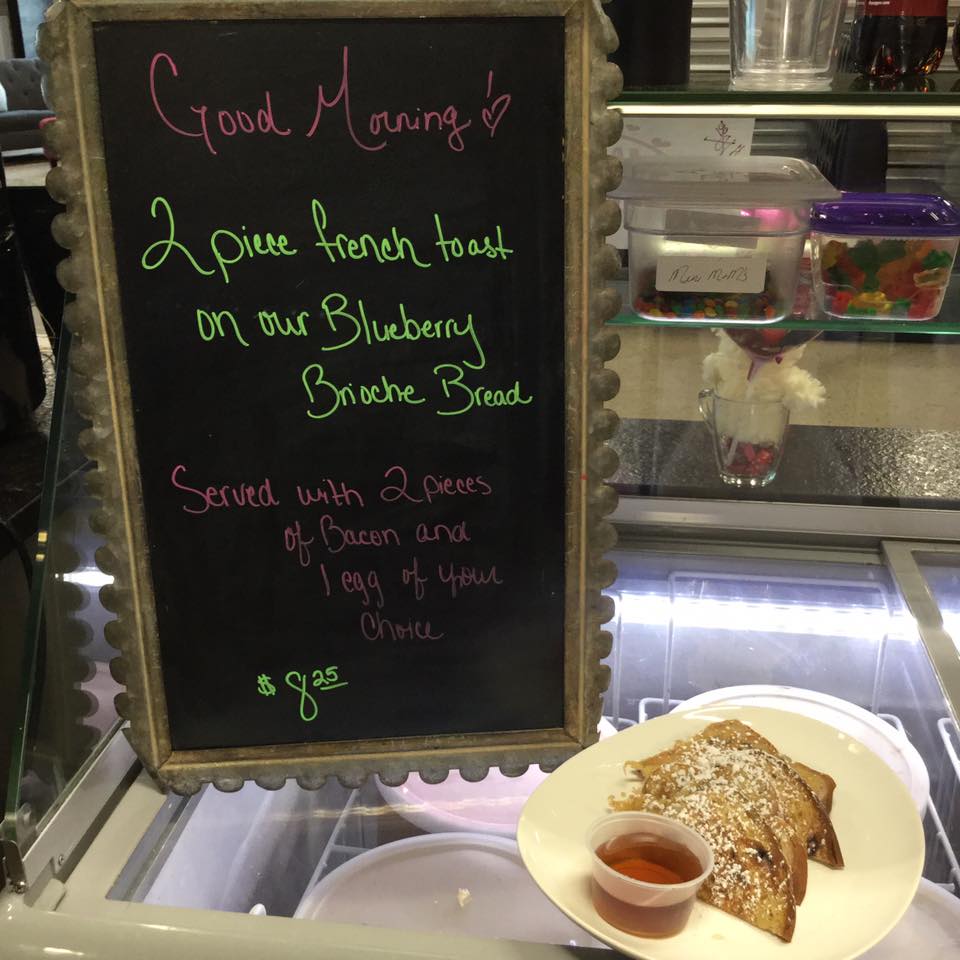 Good Morning!
2 piece french toast
on our Blueberry
Brioche Bread
Served with 2 pieces
of Bacon and
1 egg of your
Choice
$ 8.25
Mini M&M's